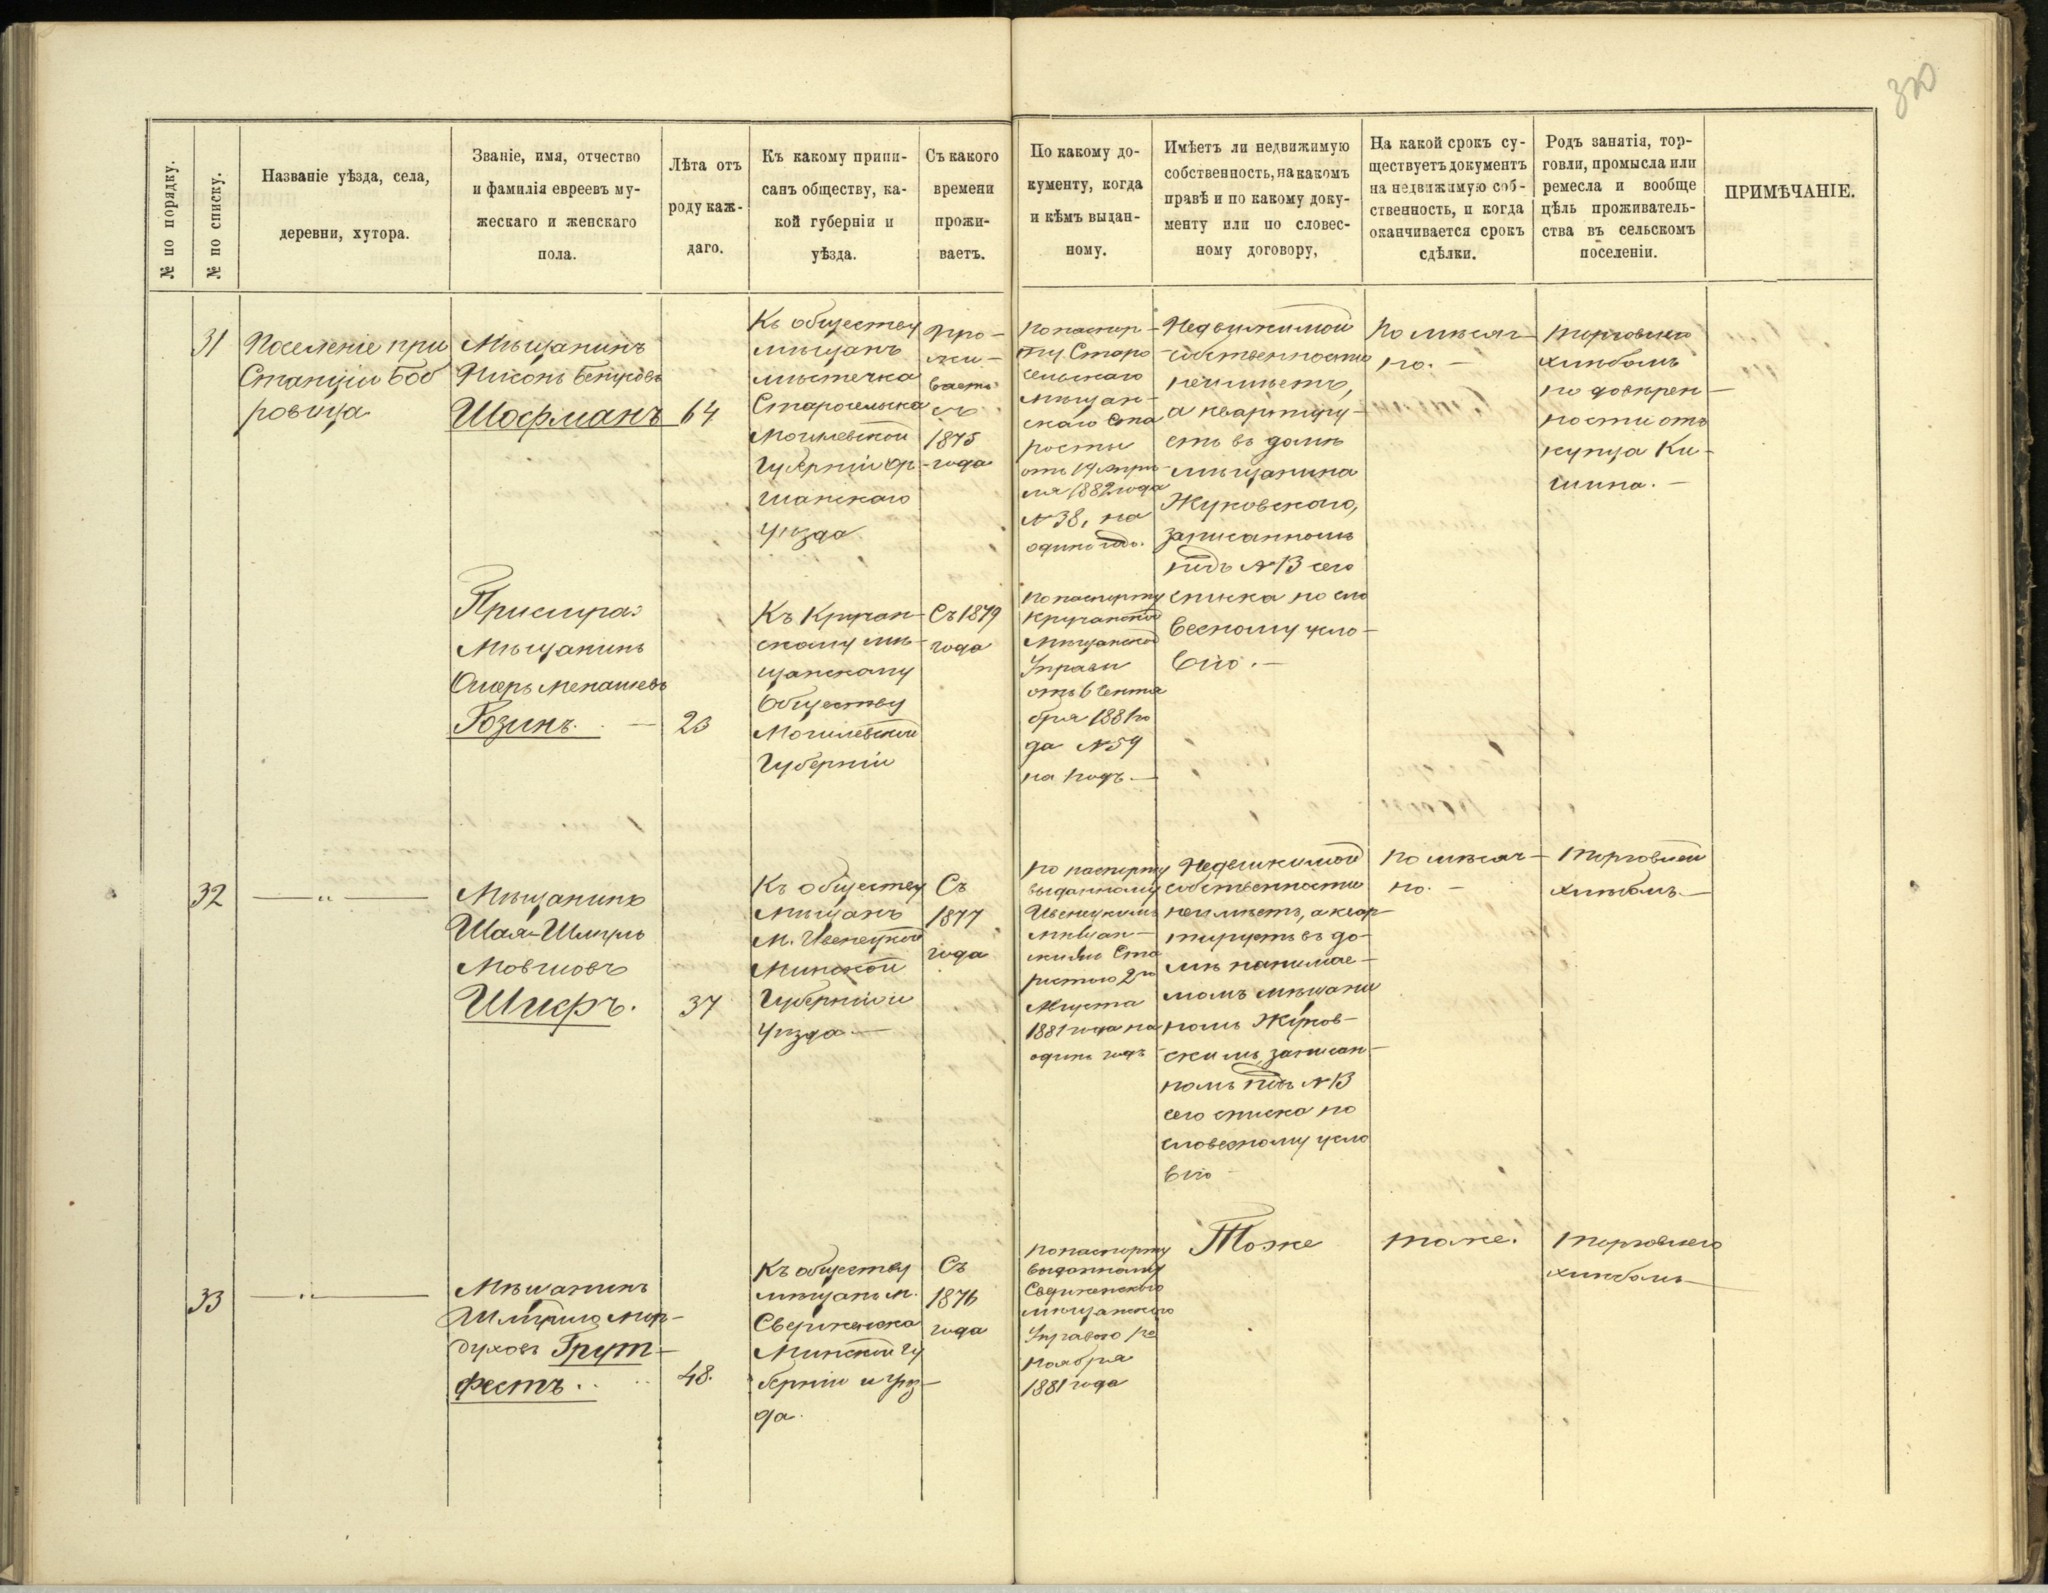 320
№ по порядку.
№ по списку.
Названіе уѣзда, села,
деревни, хутора.
Званіе, имя, отчество
и фамилія евреевъ му-
жескаго и женскаго
пола.
Лѣта отъ
роду каж-
даго.
Къ какому припи-
санъ обществу, ка-
кой губерніи и
уѣзда.
Съ какого
времени
прожи-
ваетъ.
По какому до-
кументу, когда
и кѣмъ выдан-
ному.
Имѣетъ ли недвижимую
собственность, на какомъ
правѣ и по какому доку-
менту или по словес-
ному договору,
На какой срокъ су-
ществуетъ документъ
на недвижимую соб-
ственность, и когда
оканчивается срокъ
сдѣлки.
Родъ занятія, тор-
говли, промысла или
ремесла и вообще
цѣль проживатель-
ства въ сельскомъ
поселеніи.
ПРИМѢЧАНІЕ.
31
Поселеніе при
Станціи Боб
ровица
Мѣщанинъ
Шофманъ
64
Къ обществу
мѣщанъ
мѣстечка
Староселька
Могилевской
Губерніи Ор-
шанскаго
Уѣзда
Про-
жи-
ваетъ
съ
1875
года
По паспор-
ту Старо
сельскаго
Мѣщан-
скаго Ста
росты
отъ 19 Апрѣ-
ля 1882 года
№ 38, на
одинъ годъ.
Недвижимой
собственности
неимѣетъ,
а квартиру-
етъ въ домѣ
мѣщанина
Жуковскаго,
записанномъ
подъ № 13 сего
списка по сло
весному усло-
вію. —
По мѣсяч-
но. —
Торговля
хлѣбомъ
по довѣрен-
ности отъ
купца Ки-
шина. —
Мѣщанинъ
Ошеръ Менашевъ
Розинъ. —
23
Къ Кручан-
скому мѣ-
щанскому
Обществу
Могилевской
Губерніи
Съ 1879
года
По паспорту
Кручанской
Мѣщанской
Управы
отъ 6 Сентя
бря 1881 го
да № 59
на годъ. —
32
— " —
Мѣщанинъ
Шая-Шмуль
Мовшовъ
Шифъ.
37
Къ обществу
Мѣщанъ
м. Ивенецкой
Минской
Губерніи и
Уѣзда —
Съ
1877
года
По паспорту
выданному
Ивенецкимъ
Мѣщан-
скимъ Ста
ростою 2го
Августа
1881 года на
одинъ годъ
Недвижимой
собственности
неимѣетъ, а квар-
тируетъ въ до-
мѣ нанимае-
момъ мѣщани
номъ Жуков-
скимъ, записан-
номъ подъ № 13
сего списка по
словесному усло
вію
По мѣсяч-
но. —
Торговлей
хлѣбомъ —
33
— " —
Мѣщанинъ
Шмуйло Мор-
духовъ Грут-
фестъ.
48.
Къ обществу
мѣщанъ м.
Свержена
Минской Гу
берніи и уѣз-
да.
Съ
1876
года
По паспорту
выданному
Сверженской
мѣщанскою
Управою
Ноября
1881 года
Тоже
тоже.
Торговлею
хлѣбомъ —